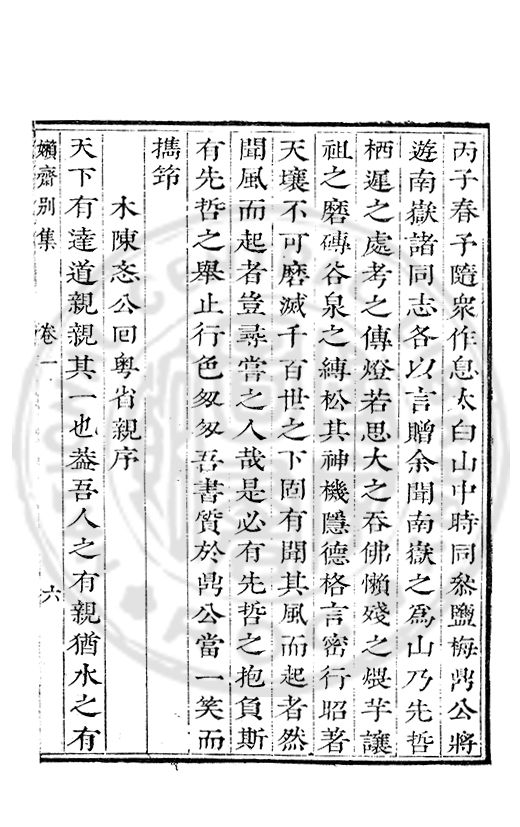 丙子春予隨衆作息太白山中時同叅鹽梅鼎公將
遊南嶽諸同志各以言贈余聞南嶽之爲山乃先哲
栖遲之處考之傳燈若思大之吞佛懶殘之煨芋讓
祖之磨磚谷泉之縛松其神機隱德格言密行昭著
天壤不可磨滅千百世之下固有聞其風而起者然
聞風而起者豈尋嘗之人哉是必有先哲之抱負斯
有先哲之舉止行色匆匆吾書質於鼎公當一笑而
擕筇
木陳忞公囘粵省親序
天下有達道親親其一也葢吾人之有親猶水之有
嬾齋别集
卷一
六